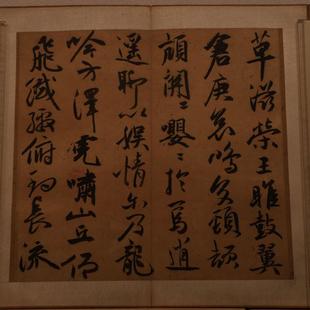 草滋榮王雎鼓翼
倉庚哀鳴交頸頡
頏關〻嚶〻於焉逍
遥聊以娱情尔乃龍
吟方澤虎嘯山丘仰
飛纖繳俯釣長流